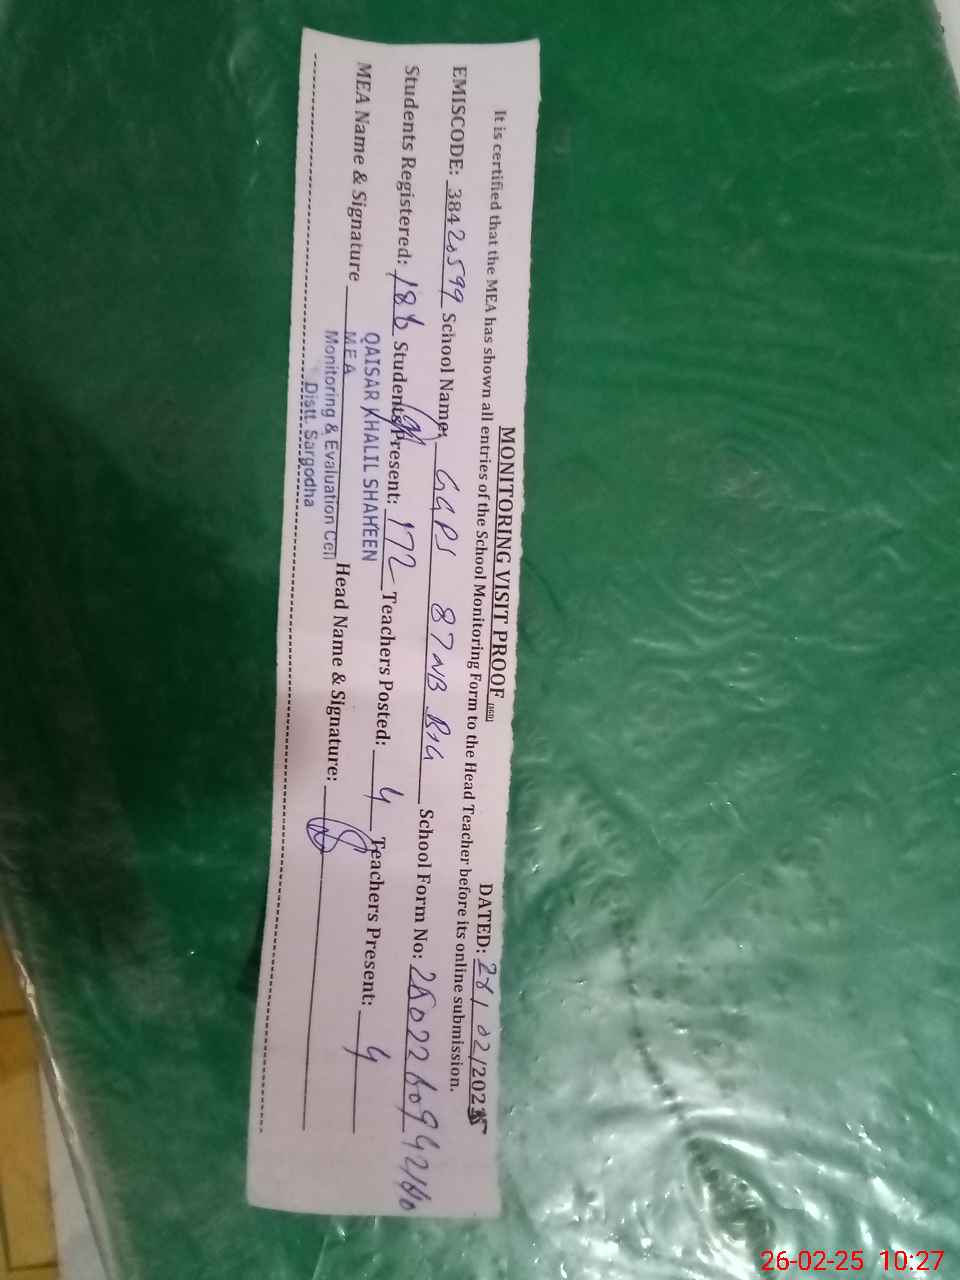 MONITORING VISIT PROOF DATED: 26/02/2025
It is certified that the MEA has shown all entries of the School Monitoring Form to the Head Teacher before its online submission.
EMISCODE: 38420599 School Name: GGPS 87NB School Form No:
Students Registered: 186 Students Present: 172 Teachers Posted: 4 Teachers Present: 4
QAISAR KHALIL SHAHEEN
MEA Name & Signature MEA Head Name & Signature:
Monitoring & Evaluation Cell
Distt. Sargodha
26-02-25 10:27